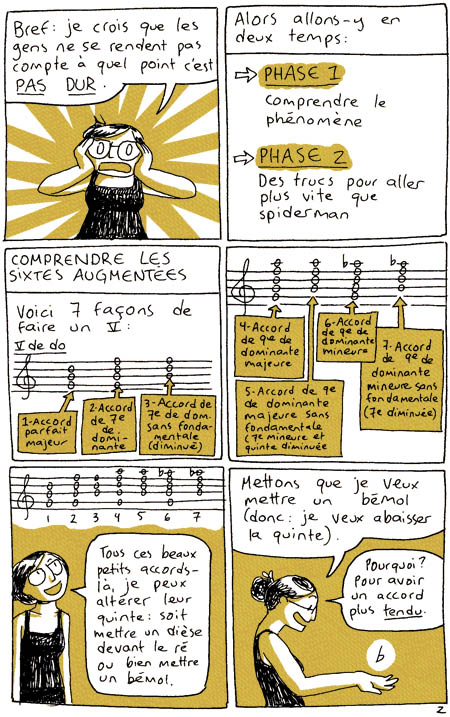 Bref: je crois que les
gens ne se rendent pas
compte à quel point c'est
PAS DUR.
Alors allons-y en
deux temps:
PHASE 1
Comprendre le
phénomène
PHASE 2
Des trucs pour aller
plus vite que
spiderman
COMPRENDRE LES
SIXTES AUGMENTÉES
Voici 7 façons de
faire un V:
V de do
1-Accord
parfait
majeur
2-Accord
de 7e
de
domi-
nante
3-Accord de
7e de dom.
sans fonda-
mentale
(diminué)
4-Accord
de 9e de
dominante
majeure
5-Accord de 9e
de dominante
majeure sans
fondamentale
(7e mineure et
quinte diminuée
6-Accord
de 9e de
dominante
mineure
7-Accord
de 9e de
dominante
mineure sans
fondamentale
(7e diminuée)
1 2 3 4 5 6 7
Tous ces beaux
petits accords-
là, je peux
altérer leur
quinte: soit
mettre un dièse
devant le ré
ou bien mettre
un bémol.
Mettons que je veux
mettre un bémol
(donc: je veux abaisser
la quinte).
Pourquoi?
Pour avoir
un accord
plus tendu.
2